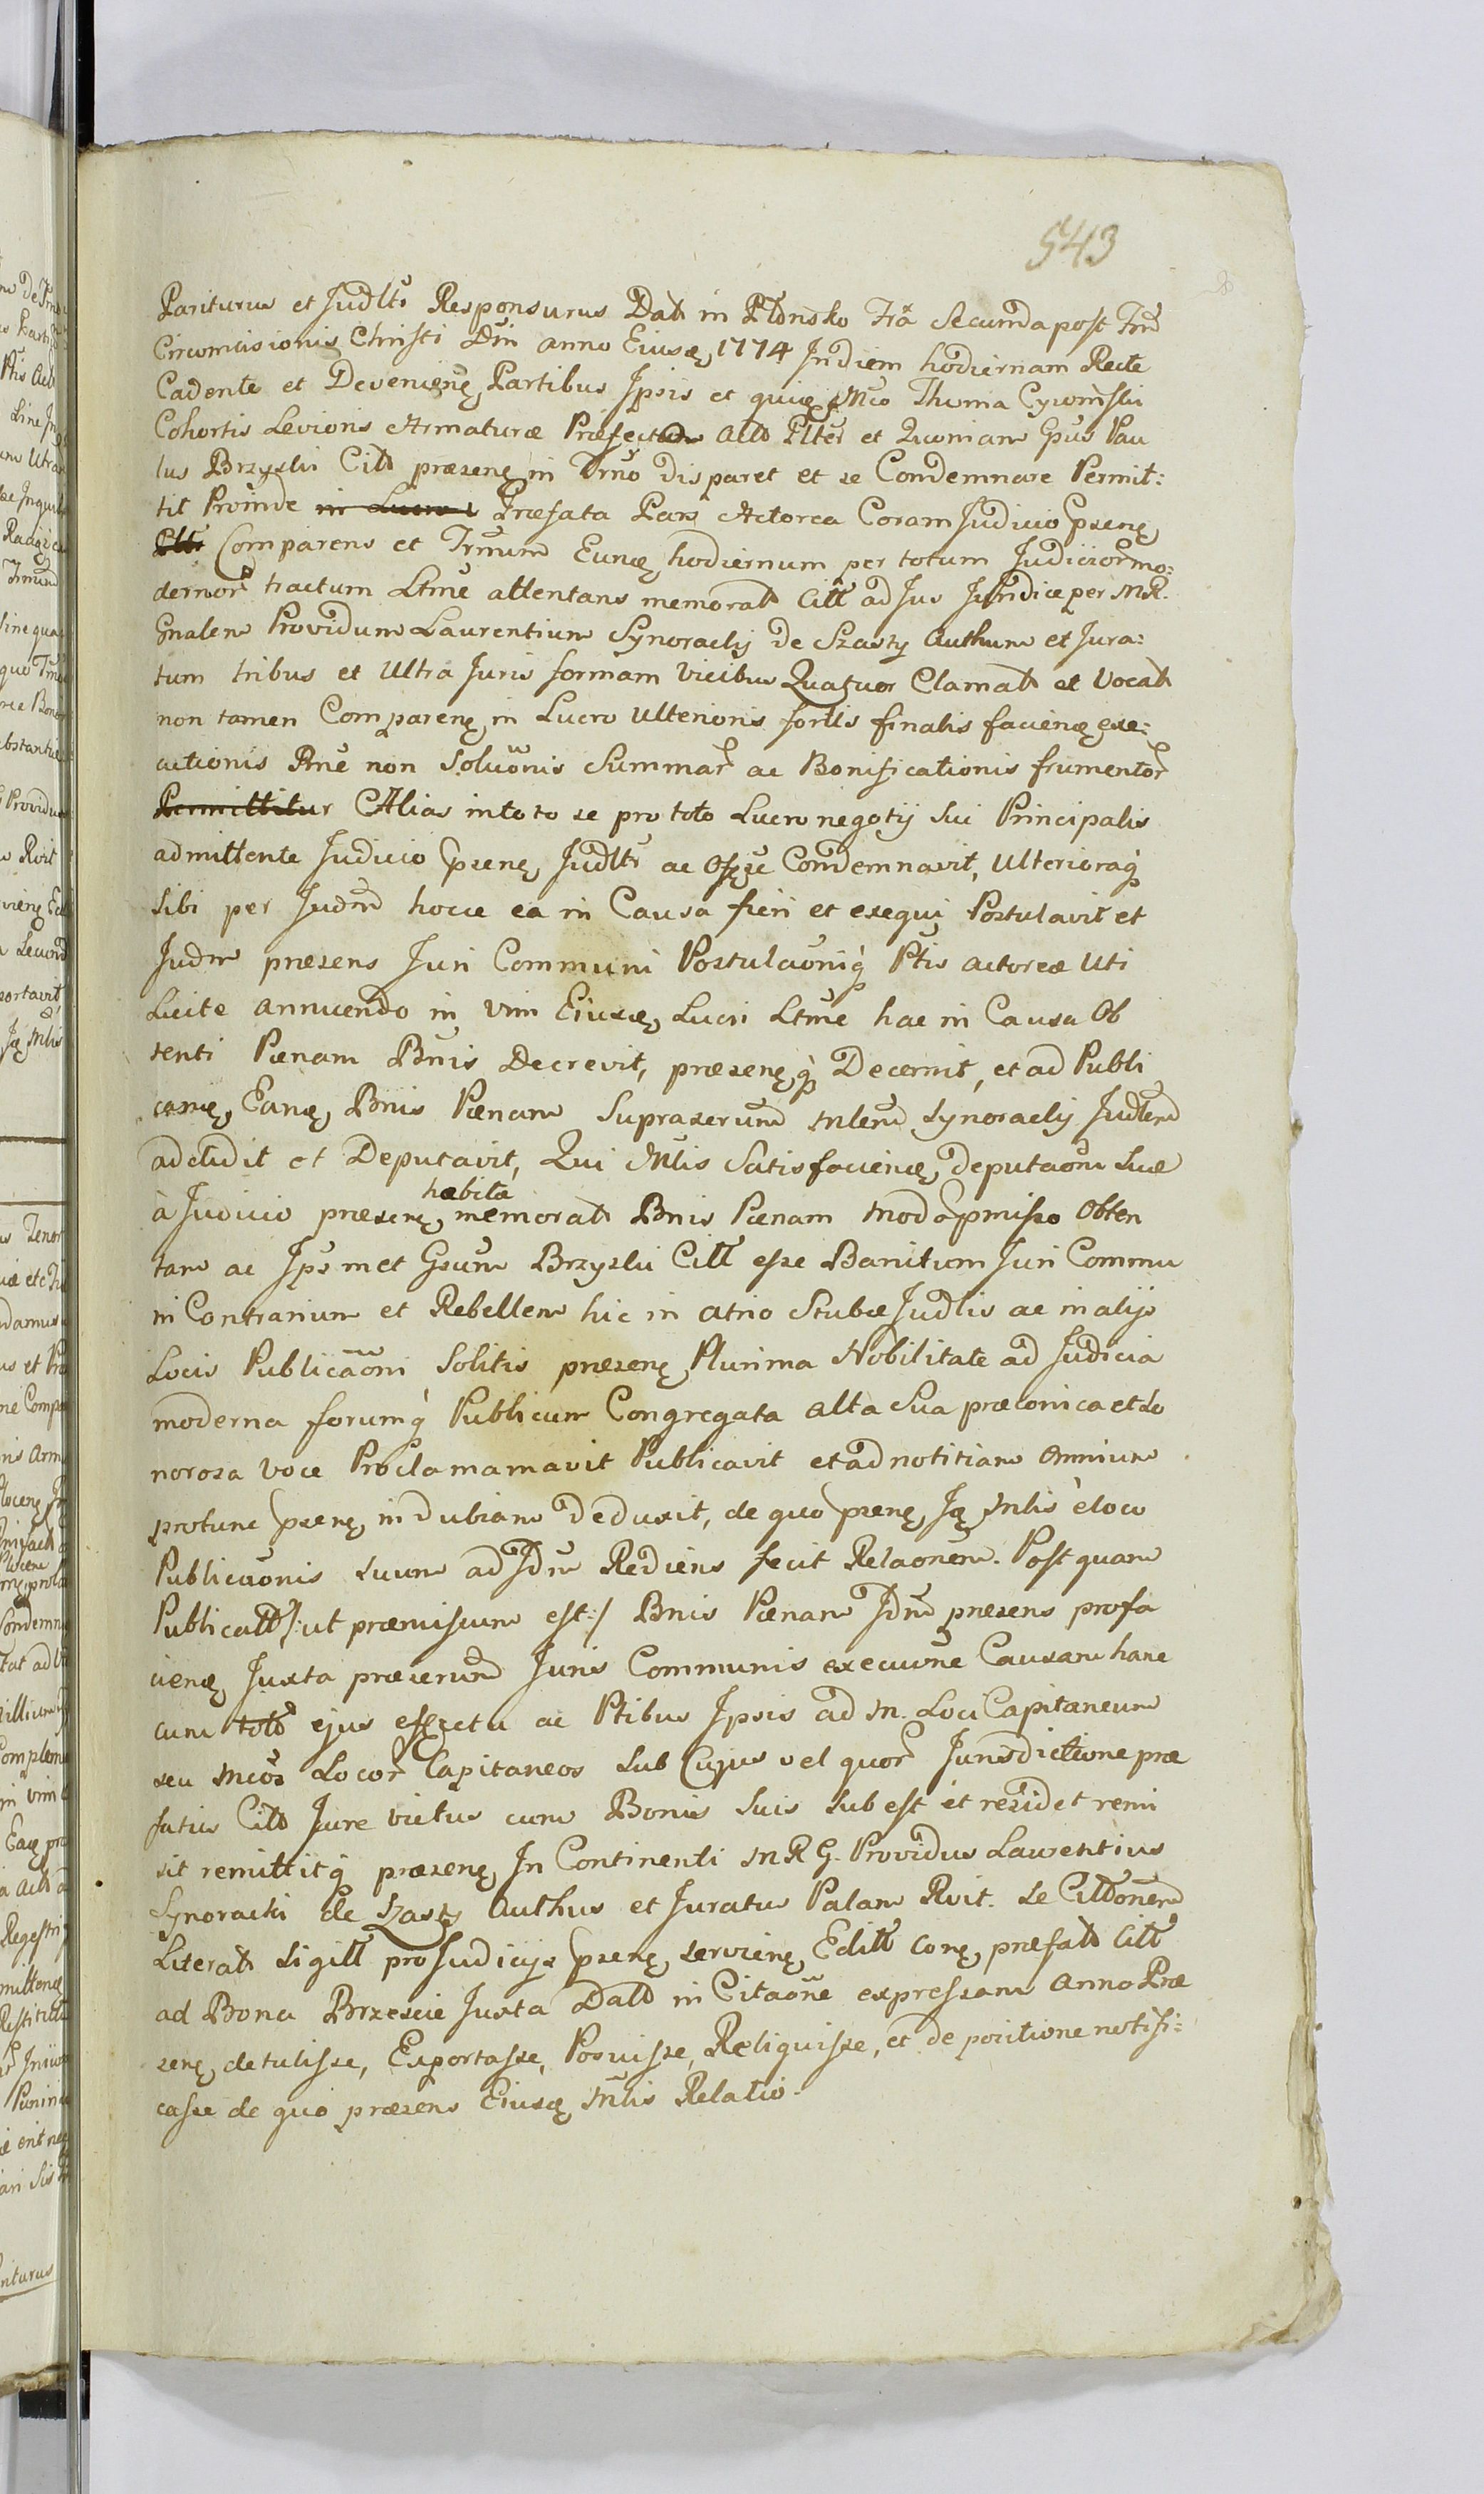 543
Pariturus et Judlr Responsurus Datt in Płonsko Fra Secunda post Frũ
Circumcisionis Christi Dñi anno Eiusdę 1774 In diem hodiernam Recte
Cadente et Devenienę Partibus Ipsis et quidę Mco Thoma Cyrōmski
Cohortis Levioris Armaturæ Præfecto Actō Pltēr et Quoniam Gsūs Pau
lus Brzyski Cittō præsenę in Trno disparet et se Condemnare Permit:
tit Proinde Præfata Pars Actorea Coram Judicio Psenę
Comparens et Trnum Eunđę hodiernum per totum Judicior mo:
dernor tractum Ltme attentans memoratt Citt ad Jus Juridice per MR.
Gnalem Providum Laurentium Synoracky de Szasty Authum et Jura:
tum tribus et Ultra Juris formam Vicibus Quatuor Clamatt et Vocatt
non tamen Comparenę in Lucro Ulterioris fortis finalis faciendę exe:
cutionis Rne non Soluōnis Summar ac Bonificationis frumentor
Permittitur Alias in toto se pro toto Lucro negotij Sui Principalis
admittente Judicio Psenę Judltr ac Condemnavit, Ulterioraq
Sibi per Judm hocce ea in Causa fieri et exequi Postulavit et
Judm præsens Juri Communi Postulaōniq Ptis actoreæ Uti
Licite annuendo in vim Eiusdę Lucri Ltme hac in Causa Ob
tenti Pœnam Bnis Decrevit, præsenęq Decernit, et ad Publi
candę Eandę Bnis Pœnam Suprasērum Mlem Synoracky Judlem
addidit et Deputavit, Qui Mlis Satisfaciendę deputaōni Suæ
à Judicio præsenę habita memoratt Bnis Pœnam modo pmisso Obten
tam ac Ipsmet Gsum Brzyski Citt esse Banitum Juri Commu
ni Contrarium et Rebellem hic in atrio Stubæ Judlis ac in alijs
Locis Publicaōni Solitis præsenę Plurima Nobilitate ad Judicia
moderna forumq Publicum Congregata alta Sua præconica et So
norosa voce Proclamamavit Publicavit et ad notitiam Omnium
protunc Psenę indubiam Deduxit, de quo psenę Idę Mlis è loco
Publicaōnis Suum ad Jdm Rediens fecit Relaōnem. Post quam
Publicatt /: ut præmissum est :/ Bnis Pœnam Jdm præsens profa
ciendę Juxta præserum Juris Communis execuōne Causam hanc
cum totō ejus effectu ac Ptibus Ipsis ad M. Loci Capitaneum
seu Mcos Locor Capitaneos Sub Cujus vel quor Jurisdictione præ
fatus Cittō Jure victus cum Bonis Suis Subest et residet remi
sit remittitq præsenę In Continenti MRG. Providus Laurentius
Synoracki de Szasty Authus et Juratus Palam Rvit. Se Cittōnem
Literatt Sigill pro Judicijs Psenę servienę Editt conę præfatt Citt
ad Bona Brzescie Juxta Dattō in Citaōne expressam Anno Præ
senę detulisse, Exportasse, Posuisse, Reliquisse, et de positione notifi:
casse de quo præsens Eiusdę Mlis Relatio.